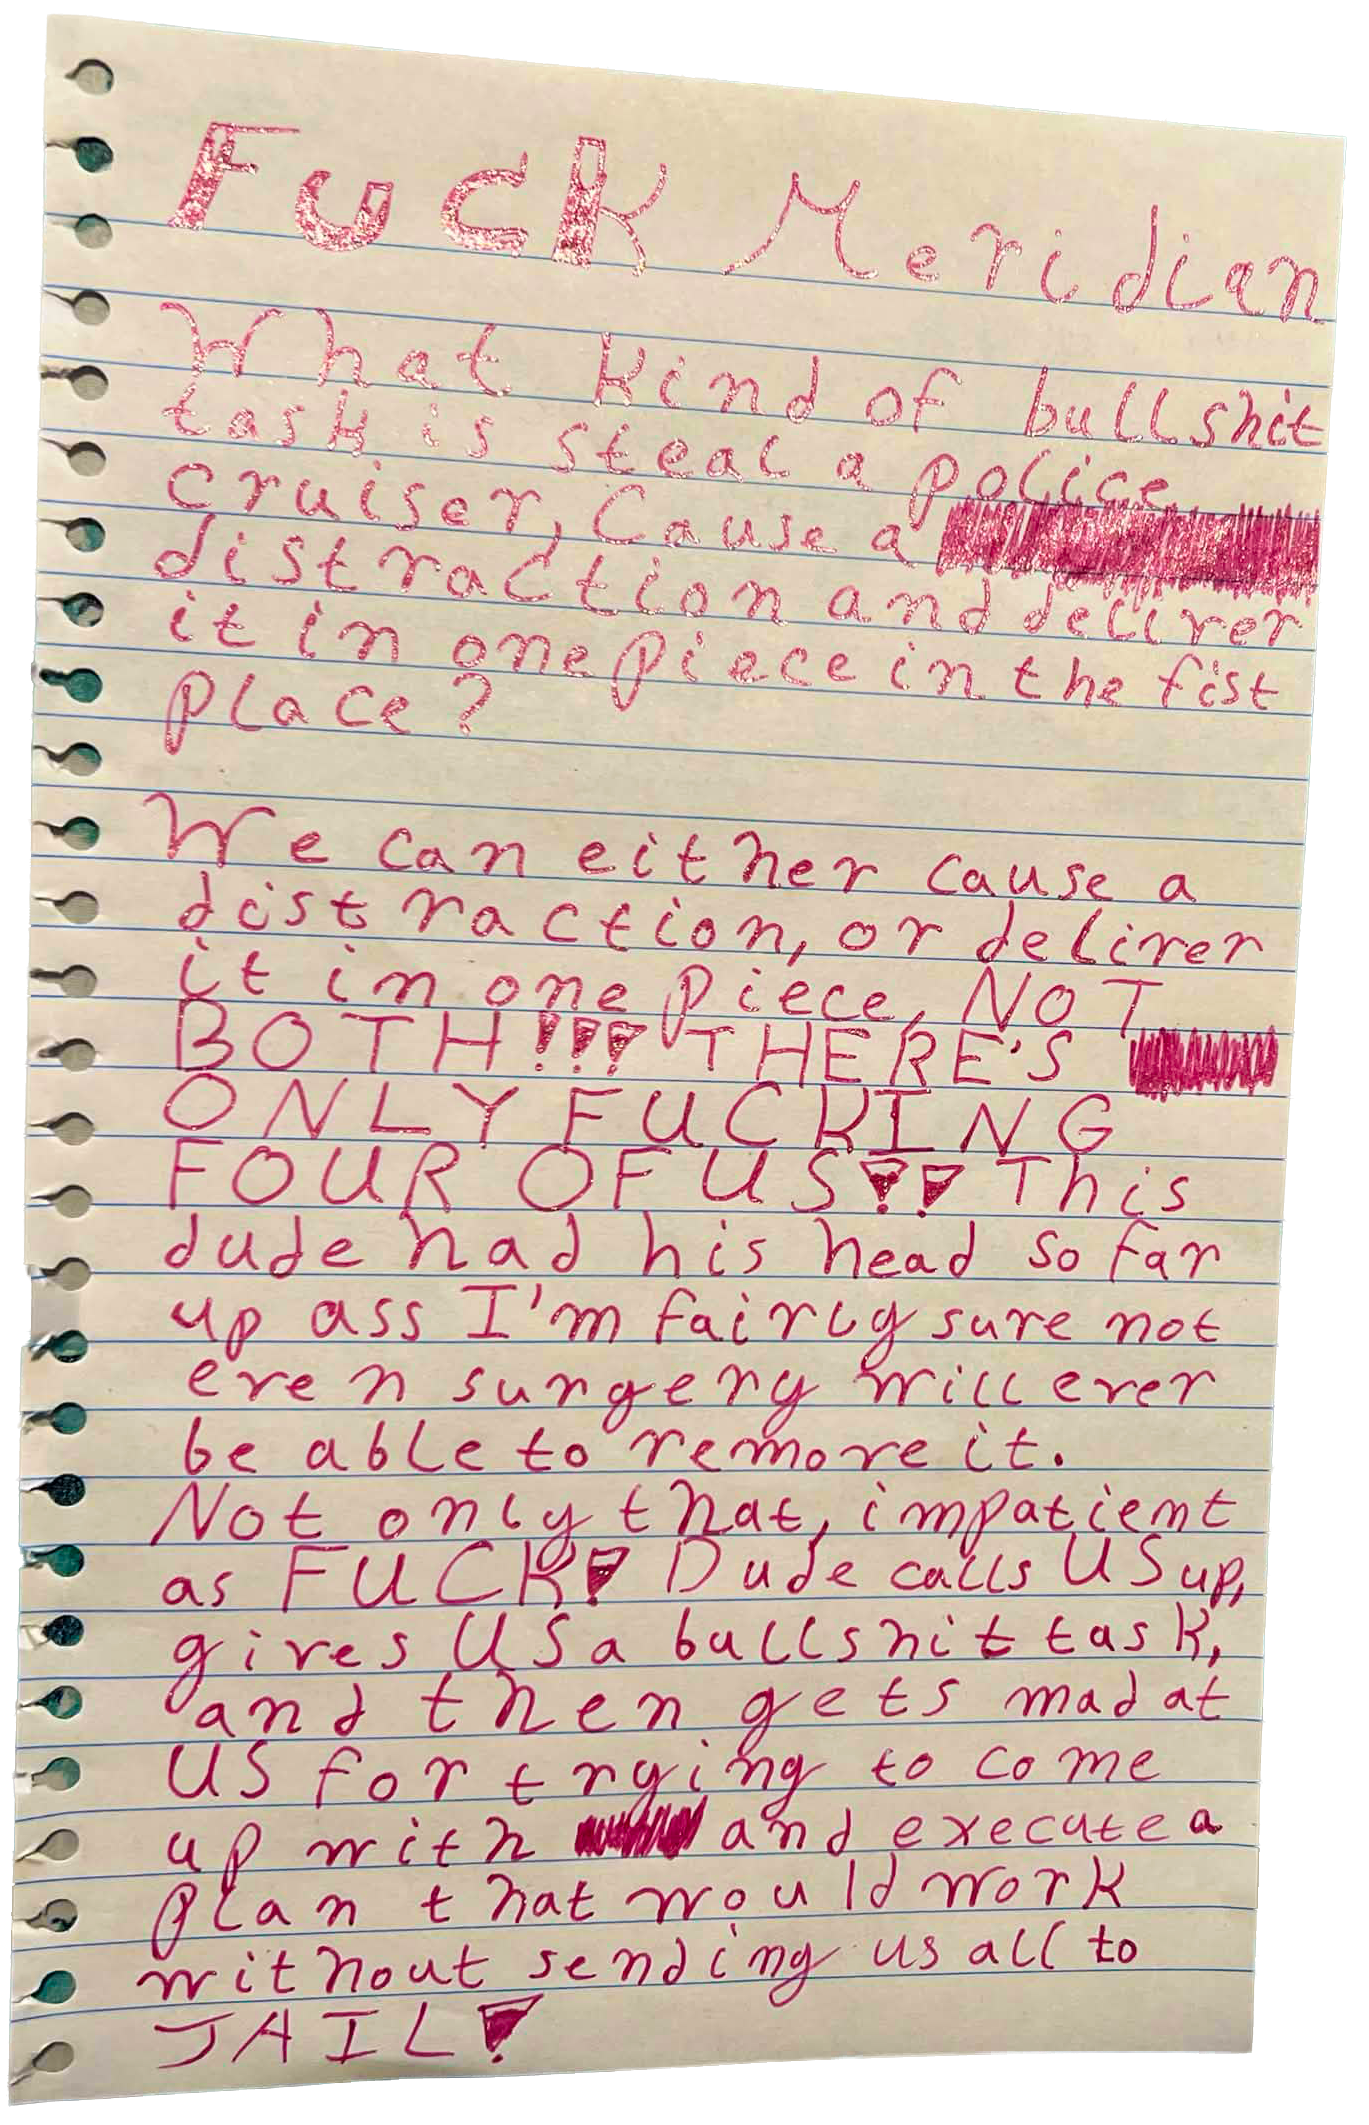 FUCK Meridian
What kind of bullshit
task is steal a police
cruiser, Cause a
distraction and deliver
it in one piece in the fist
place?
We can either cause a
distraction, or deliver
it in one piece, NOT
BOTH!!! THERE'S
ONLY FUCKING
FOUR OF US!! This
dude had his head so far
up ass I'm fairly sure not
even surgery will ever
be able to remove it.
Not only that, impatient
as FUCK! Dude calls US up,
gives US a bullshit task,
and then gets mad at
US for trying to come
up with and execute a
plan that would work
without sending us all to
JAIL!